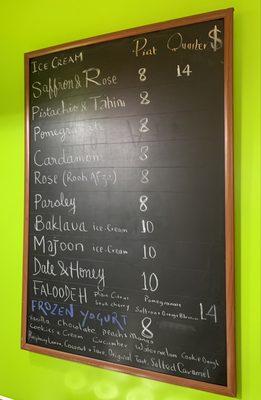 ICE CREAM Pint Quarter $
Saffron & Rose 8 14
Pistachio & Tahini 8
Pomegranate 8
Cardamom 8
Rose (Rooh Afza) 8
Parsley 8
Baklava ice-cream 10
Majoon ice-cream 10
Date & Honey 10
FALOODEH Plain Citrus Pomegranate
Sour cherry Saffron & Orange Blossom 14
FROZEN YOGURT 8
Vanilla Chocolate peach & Mango
Cookies & Cream Cucumber Watermelon Cookie Dough
Coconut Original Tart, Salted Caramel